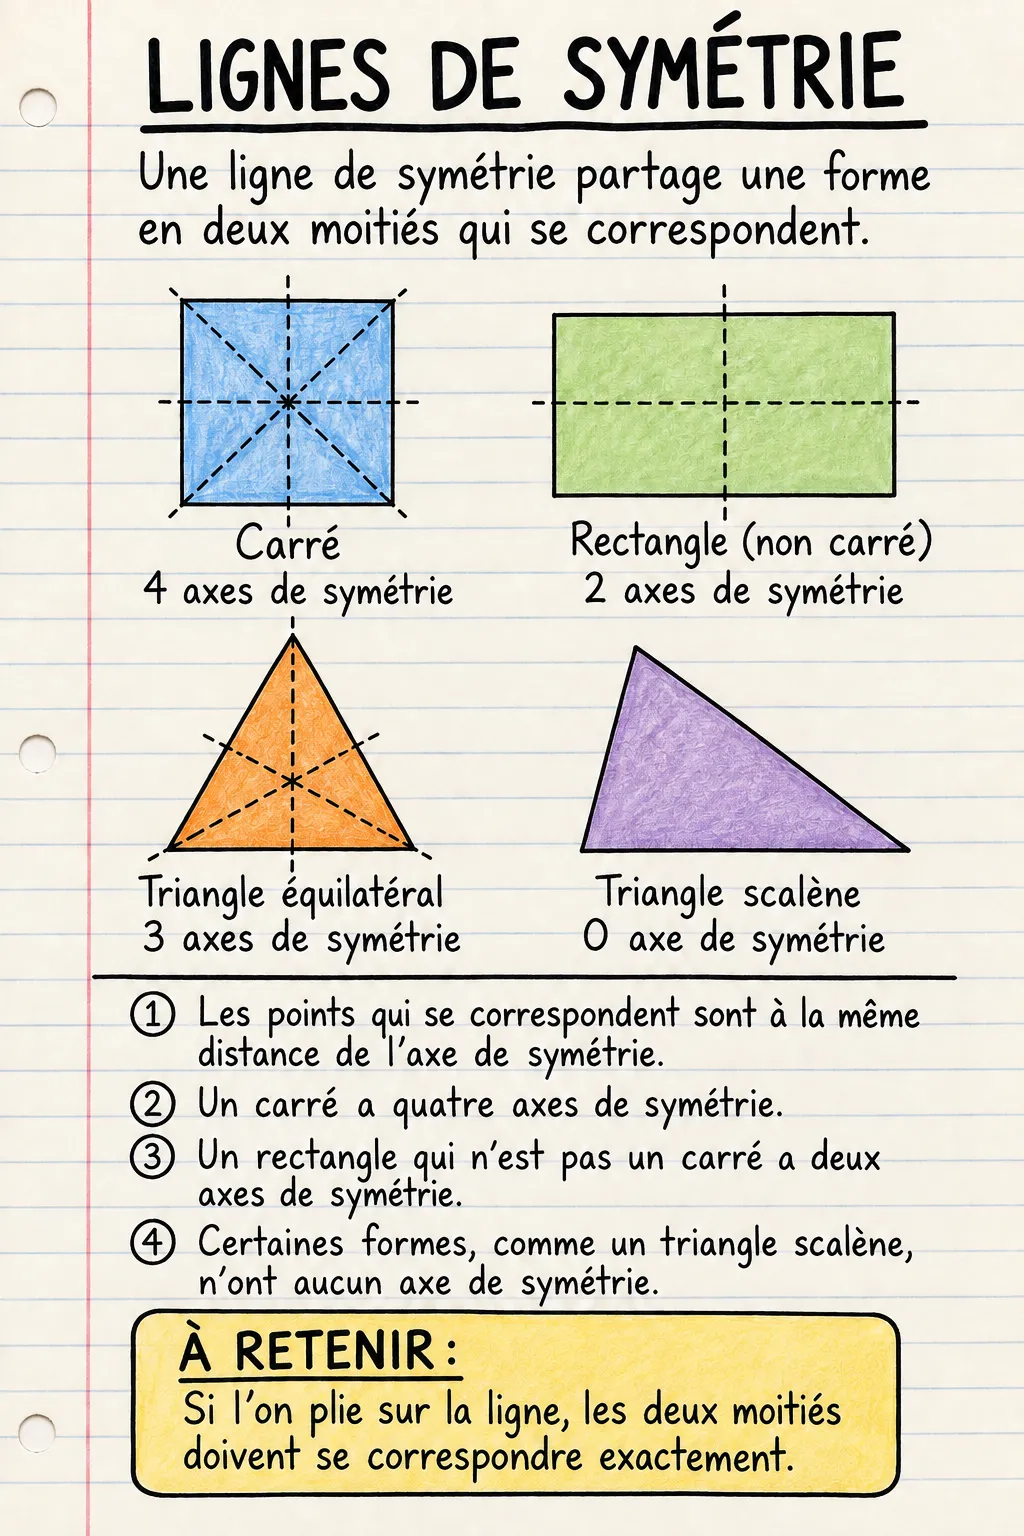 LIGNES DE SYMÉTRIE
Une ligne de symétrie partage une forme
en deux moitiés qui se correspondent.
Carré
4 axes de symétrie
Rectangle (non carré)
2 axes de symétrie
Triangle équilatéral
3 axes de symétrie
Triangle scalène
0 axe de symétrie
① Les points qui se correspondent sont à la même
distance de l'axe de symétrie.
② Un carré a quatre axes de symétrie.
③ Un rectangle qui n'est pas un carré a deux
axes de symétrie.
④ Certaines formes, comme un triangle scalène,
n'ont aucun axe de symétrie.
À RETENIR :
Si l'on plie sur la ligne, les deux moitiés
doivent se correspondre exactement.